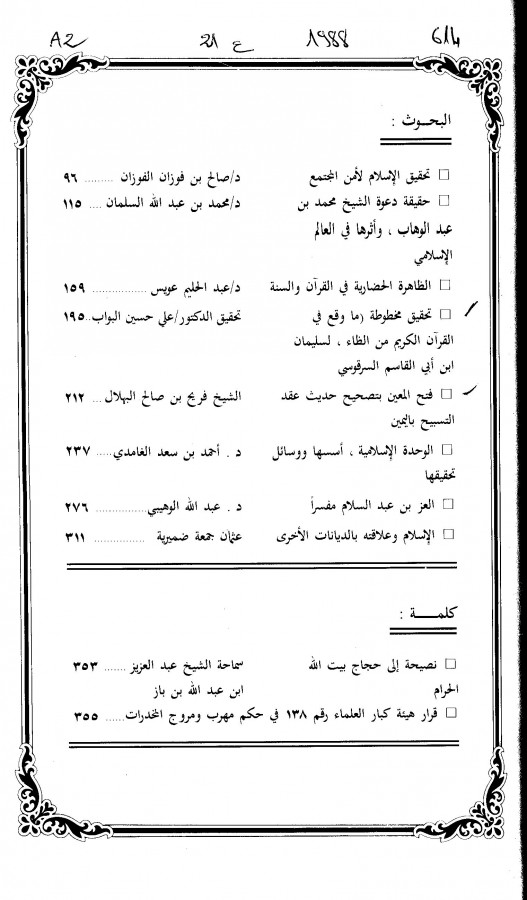 A2 21 ع 1988 614
البحــوث :
□ تحقيق الإسلام لأمن المجتمع د/صالح بن فوزان الفوزان ......... ٩٦
□ حقيقة دعوة الشيخ محمد بن د/محمد بن عبد الله السلمان .... ١١٥
عبد الوهاب ، وأثرها في العالم
الإسلامي
□ الظاهرة الحضارية في القرآن والسنة د/عبد الحليم عويس ................. ١٥٩
□ تحقيق مخطوطة (ما وقع في تحقيق الدكتور/علي حسين البواب..١٩٥
القرآن الكريم من الظاء ، لسليمان
ابن أبي القاسم السرقوسي
□ فتح المعين بتصحيح حديث عقد الشيخ فريح بن صالح البهلال ... ٢١٢
التسبيح باليمين
□ الوحدة الإسلامية ، أسسها ووسائل د . أحمد بن سعد الغامدي ..... ٢٣٧
تحقيقها
□ العز بن عبد السلام مفسراً د . عبد الله الوهيبي ................ ٢٧٦
□ الإسلام وعلاقته بالديانات الأخرى عثمان جمعة ضميرية ................ ٣١١
كلمــــة :
□ نصيحة إلى حجاج بيت الله سماحة الشيخ عبد العزيز ....... ٣٥٣
الحرام ابن عبد الله بن باز
□ قرار هيئة كبار العلماء رقم ١٣٨ في حكم مهرب ومروج المخدرات...... ٣٥٥